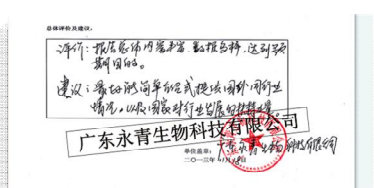 总体评价及建议:
评价:报告总体内容丰富、数据翔实,达到预期目的。
建议:最好能简单的方式提供国外同行业
情况,以及国家对行业发展的
广东永青生物科技有限公司
单位盖章:广东永青生物科技有限公司
二〇一三年